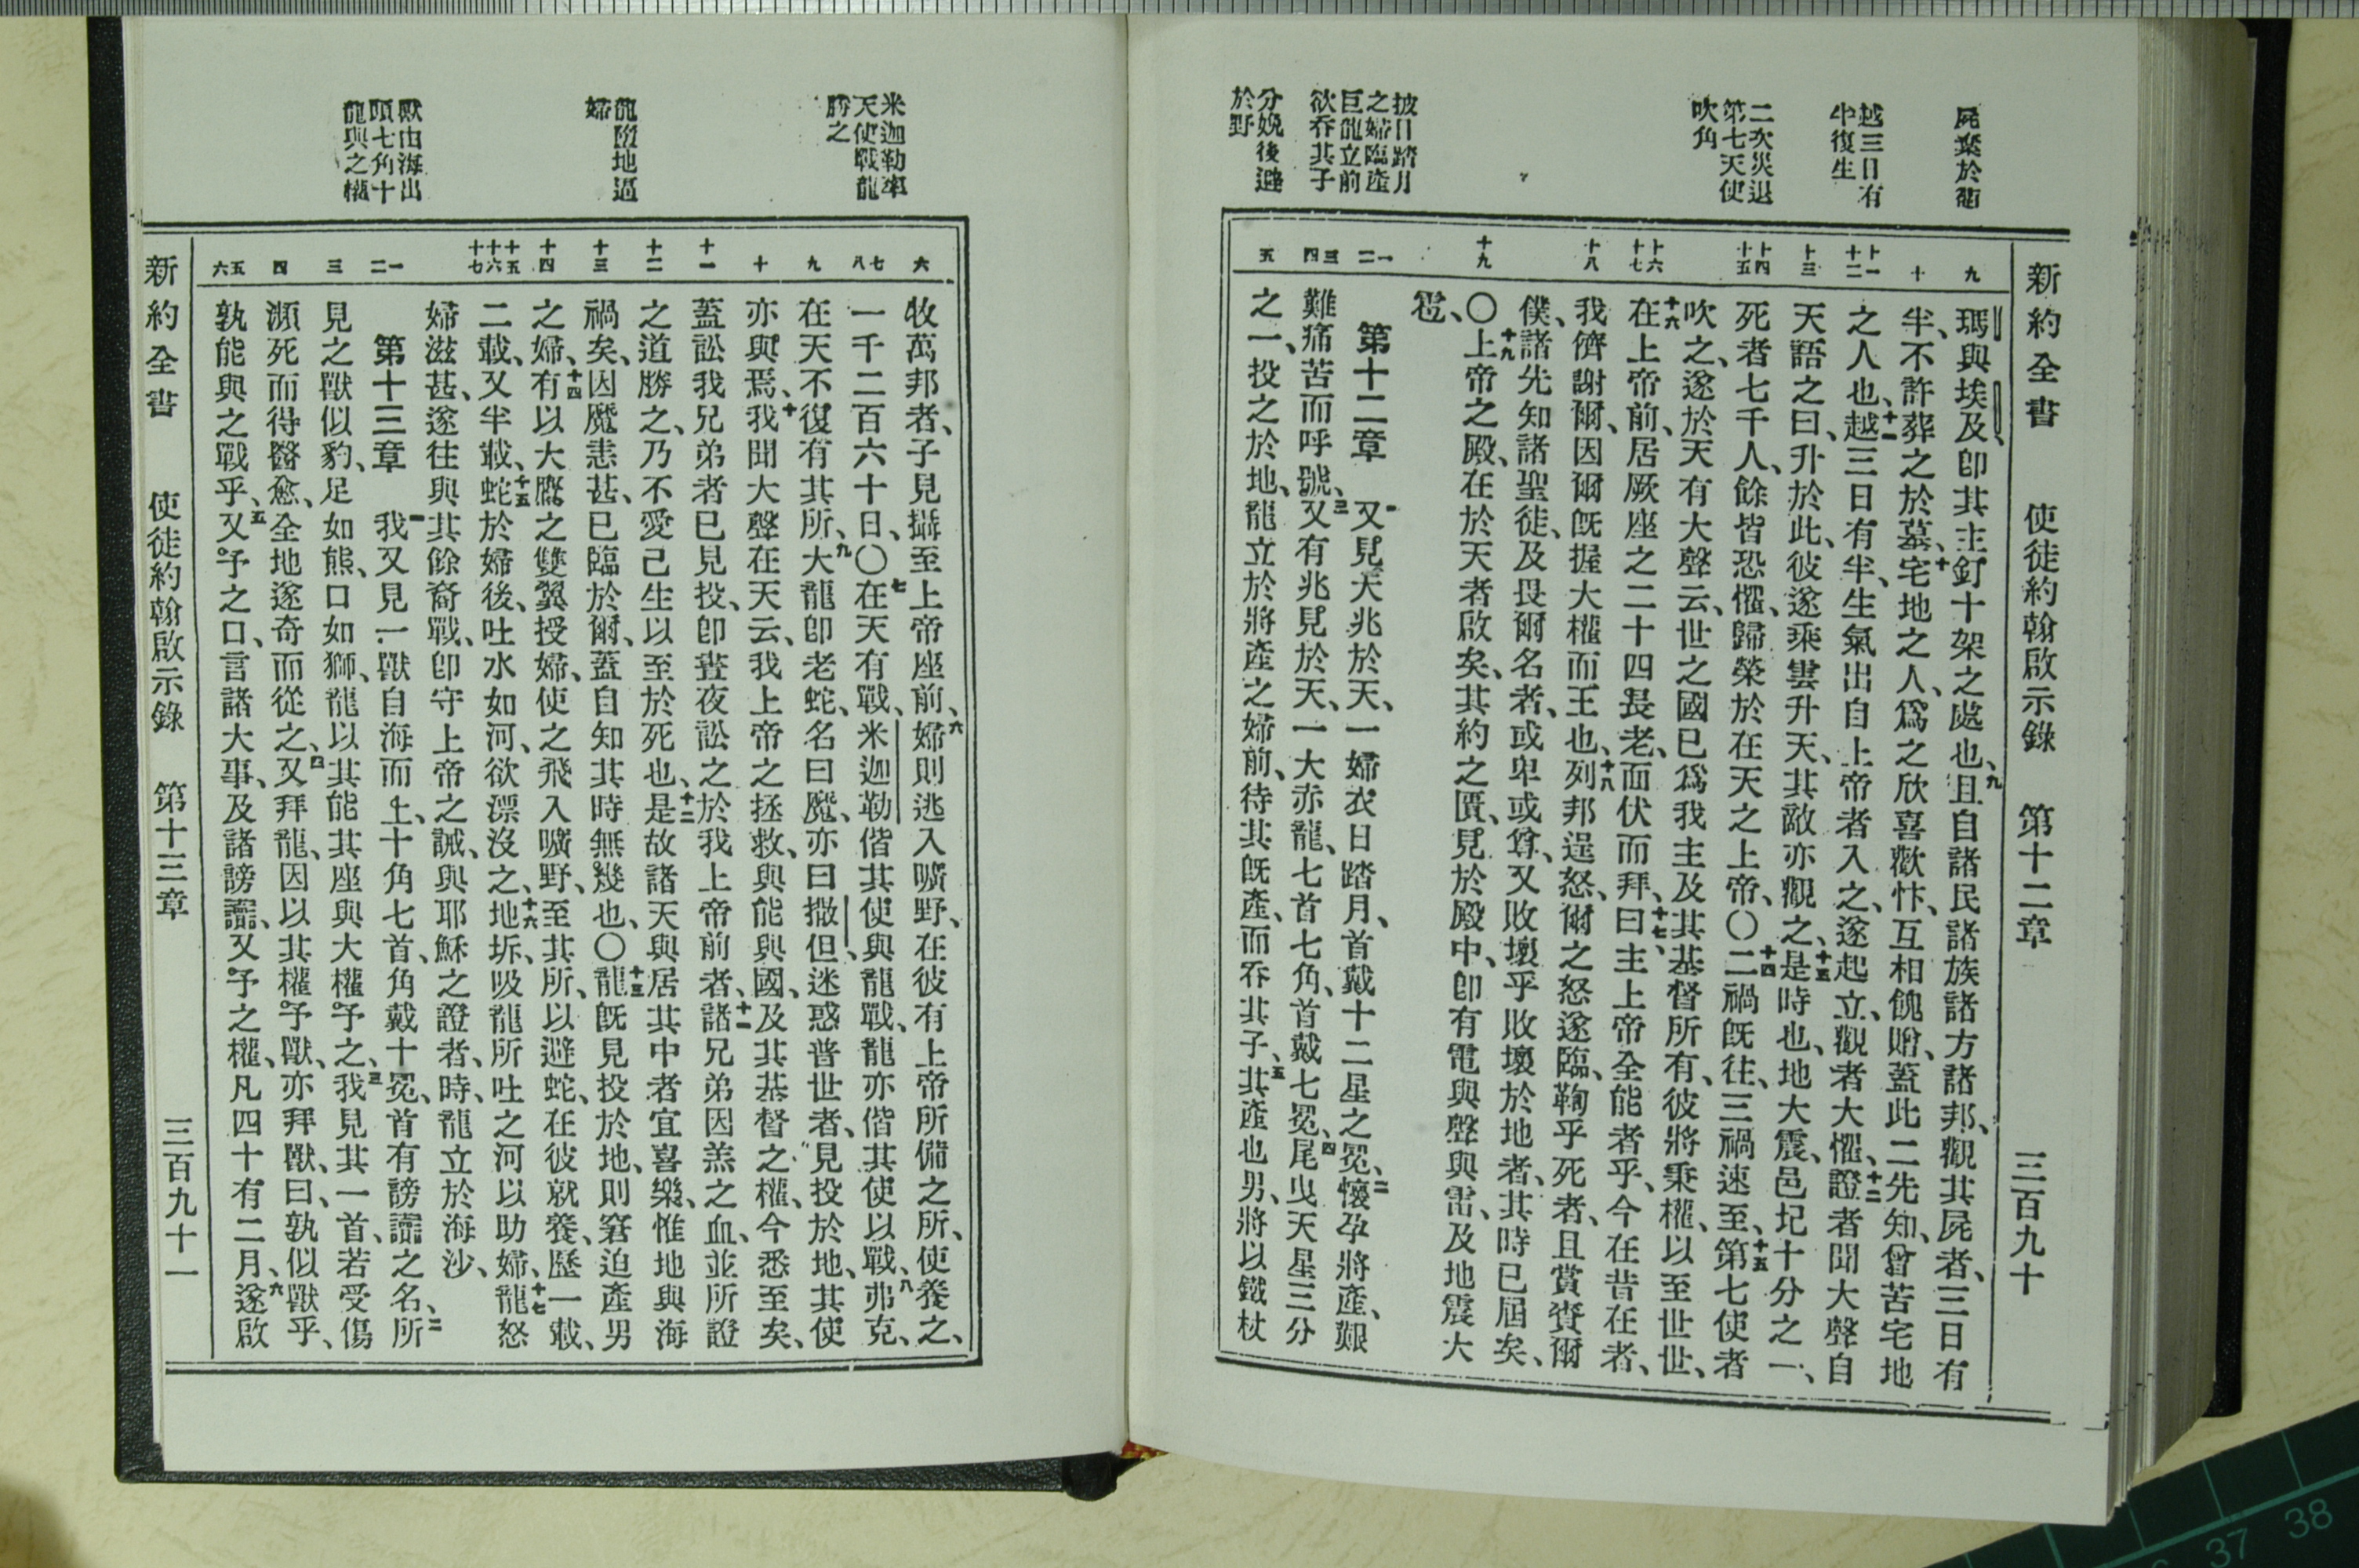 屍棄於衢
越三日有
半復生
二次災退
第七天使
吹角
披日踏月
之婦臨產
巨龍立前
欲吞其子
分娩後避
於野
新約全書 使徒約翰啟示錄 第十二章 三百九十
九 十 十一 十二 十三 十四 十五 十六 十七 十八 十九 一 二 三 四 五
瑪與埃及、卽其主釘十架之處也、九且自諸民諸族諸方諸邦、觀其屍者、三日有
半、不許葬之於墓、十宅地之人、爲之欣喜歡忭、互相餽贈、蓋此二先知、曾苦宅地
之人也、十一越三日有半、生氣出自上帝者入之、遂起立、觀者大懼、十二證者聞大聲自
天語之曰、升於此、彼遂乘雲升天、其敵亦觀之、十三是時也、地大震、邑圮十分之一、
死者七千人、餘皆恐懼、歸榮於在天之上帝、〇十四二禍旣往、三禍速至、十五第七使者
吹之、遂於天有大聲云、世之國已爲我主及其基督所有、彼將秉權、以至世世、
十六在上帝前、居厥座之二十四長老、面伏而拜、曰、十七主上帝全能者乎、今在昔在者、
我儕謝爾、因爾旣握大權而王也、十八列邦逞怒、爾之怒遂臨、鞫乎死者、且賞賚爾
僕、諸先知諸聖徒、及畏爾名者、或卑或尊、又敗壞乎敗壞於地者、其時已屆矣、
〇十九上帝之殿、在於天者啟矣、其約之匱、見於殿中、卽有電與聲與雷、及地震大
雹、
第十二章 一又見大兆於天、一婦衣日踏月、首戴十二星之冕、二懷孕將產、艱
難痛苦而呼號、三又有兆見於天、一大赤龍、七首七角、首戴七冕、四尾曳天星三分
之一、投之於地、龍立於將產之婦前、待其旣產、而吞其子、五其產也男、將以鐵杖
米迦勒率
天使戰龍
勝之
龍墮地逼
婦
獸由海出
頭七角十
龍與之權
六 七 八 九 十 十一 十二 十三 十四 十五 十六 十七 一 二 三 四 五 六
牧萬邦者、子見攝至上帝座前、六婦則逃入曠野、在彼有上帝所備之所、使養之、
一千二百六十日、〇七在天有戰、米迦勒偕其使與龍戰、龍亦偕其使以戰、八弗克、
在天不復有其所、九大龍卽老蛇、名曰魔、亦曰撒但、迷惑普世者、見投於地、其使
亦與焉、十我聞大聲在天云、我上帝之拯救、與能與國、及其基督之權、今悉至矣、
蓋訟我兄弟者已見投、卽晝夜訟之於我上帝前者、十一諸兄弟因羔之血、並所證
之道勝之、乃不愛己生以至於死也、十二是故諸天與居其中者宜喜樂、惟地與海
禍矣、因魔恚甚、已臨於爾、蓋自知其時無幾也、〇十三龍旣見投於地、則窘迫產男
之婦、十四有以大鷹之雙翼授婦、使之飛入曠野、至其所、以避蛇、在彼就養、歷一載、
二載、又半載、十五蛇於婦後、吐水如河、欲漂沒之、十六地坼、吸龍所吐之河以助婦、十七龍怒
婦滋甚、遂往與其餘裔戰、卽守上帝之誡、與耶穌之證者、時龍立於海沙、
第十三章 一我又見一獸自海而上、十角七首、角戴十冕、首有謗讟之名、二所
見之獸似豹、足如熊、口如獅、龍以其能其座與大權予之、三我見其一首、若受傷
瀕死而得醫愈、全地遂奇而從之、四又拜龍、因以其權予獸、亦拜獸、曰、孰似獸乎、
孰能與之戰乎、五又予之口、言諸大事、及諸謗讟、又予之權、凡四十有二月、六遂啟
新約全書 使徒約翰啟示錄 第十三章 三百九十一
37 38